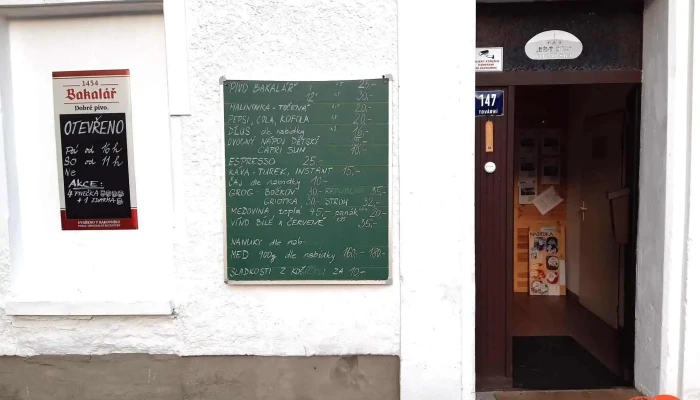 1454
Bakalář
Dobré pivo.
OTEVŘENO
Pá od 16 h
SO od 11 h
Ne
AKCE:
4 PIVEČKA
+ 1 ZDARMA
PIVO BAKALÁŘ
MALINOVKA - TOČENÁ
PEPSI, COLA, KOFOLA 20.-
DŽUS dle nabídky
OVOCNÝ NÁPOJ DĚTSKÝ
CAPRI SUN
ESPRESSO 25.-
KÁVA - TUREK, INSTANT 15,-
ČAJ dle nabídky 10.-
GROG - BOŽKOV 30.-
GRIOTKA 30.- STROH 32,-
MEDOVINA teplá 45,- panák 20.-
VÍNO BÍLÉ A ČERVENÉ 35,-
NANUKY dle nab.
MED 900g dle nabídky 160.- 180.-
SLADKOSTI Z KOŠÍČKU ZA 10.-
147
TOVÁRNÍ
NABÍDKA